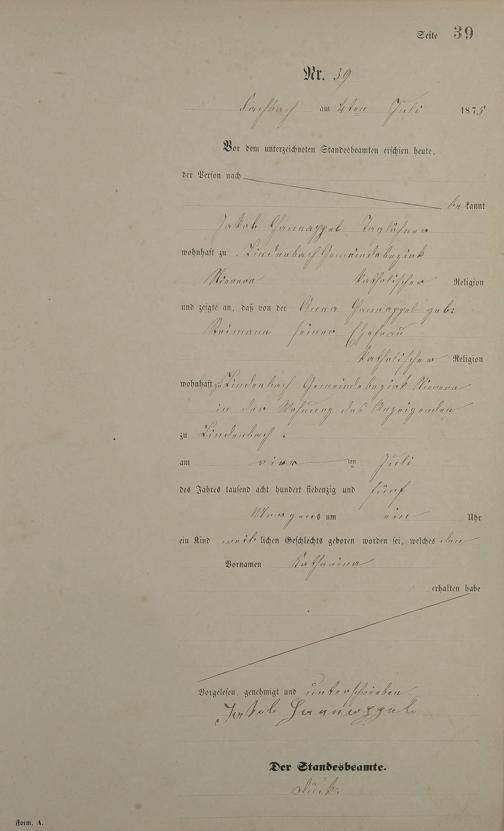 Seite 39
Nr. 39
Fachbach am 4ten Juli 1875
Vor dem unterzeichneten Standesbeamten erschien heute,
der Person nach
be kannt
Jakob Hannappel Taglöhner
wohnhaft zu Lindenbach Gemeindebezirk
Nievern katholischer Religion
und zeigte an, daß von der Anna Hannappel geb:
Reimann seiner Ehefrau
katholischer Religion
wohnhaft zu Lindenbach Gemeindebezirk Nievern
in der Wohnung des Anzeigenden
zu Lindenbach
am vier ten Juli
des Jahres tausend acht hundert siebenzig und fünf
Morgens um ein Uhr
ein Kind weib lichen Geschlechts geboren worden sei, welches den
Vornamen Katharina
erhalten habe
Vorgelesen, genehmigt und unterschrieben
Jakob Hannappel
Der Standesbeamte.
Form. A.